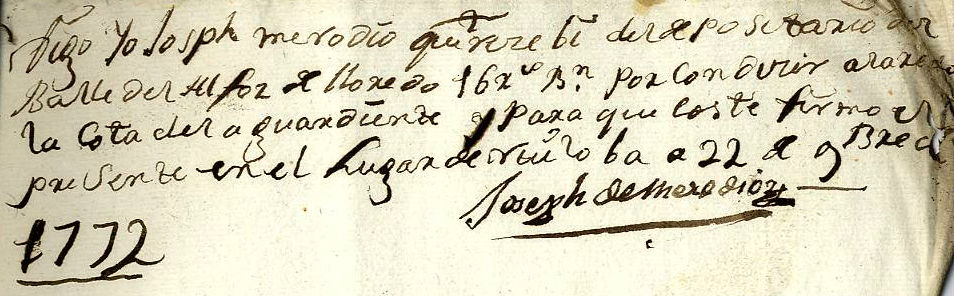 Digo Yo Josph merodio que rezebi del depositario del
Balle del Alfoz de lloredo 16 rs Bn por Conduzir a laredo
la Cota del aguardiente y para que coste firmo el
presente en el Lugar de ba a 22 de 9Bre de
Joseph de Merodio
1772